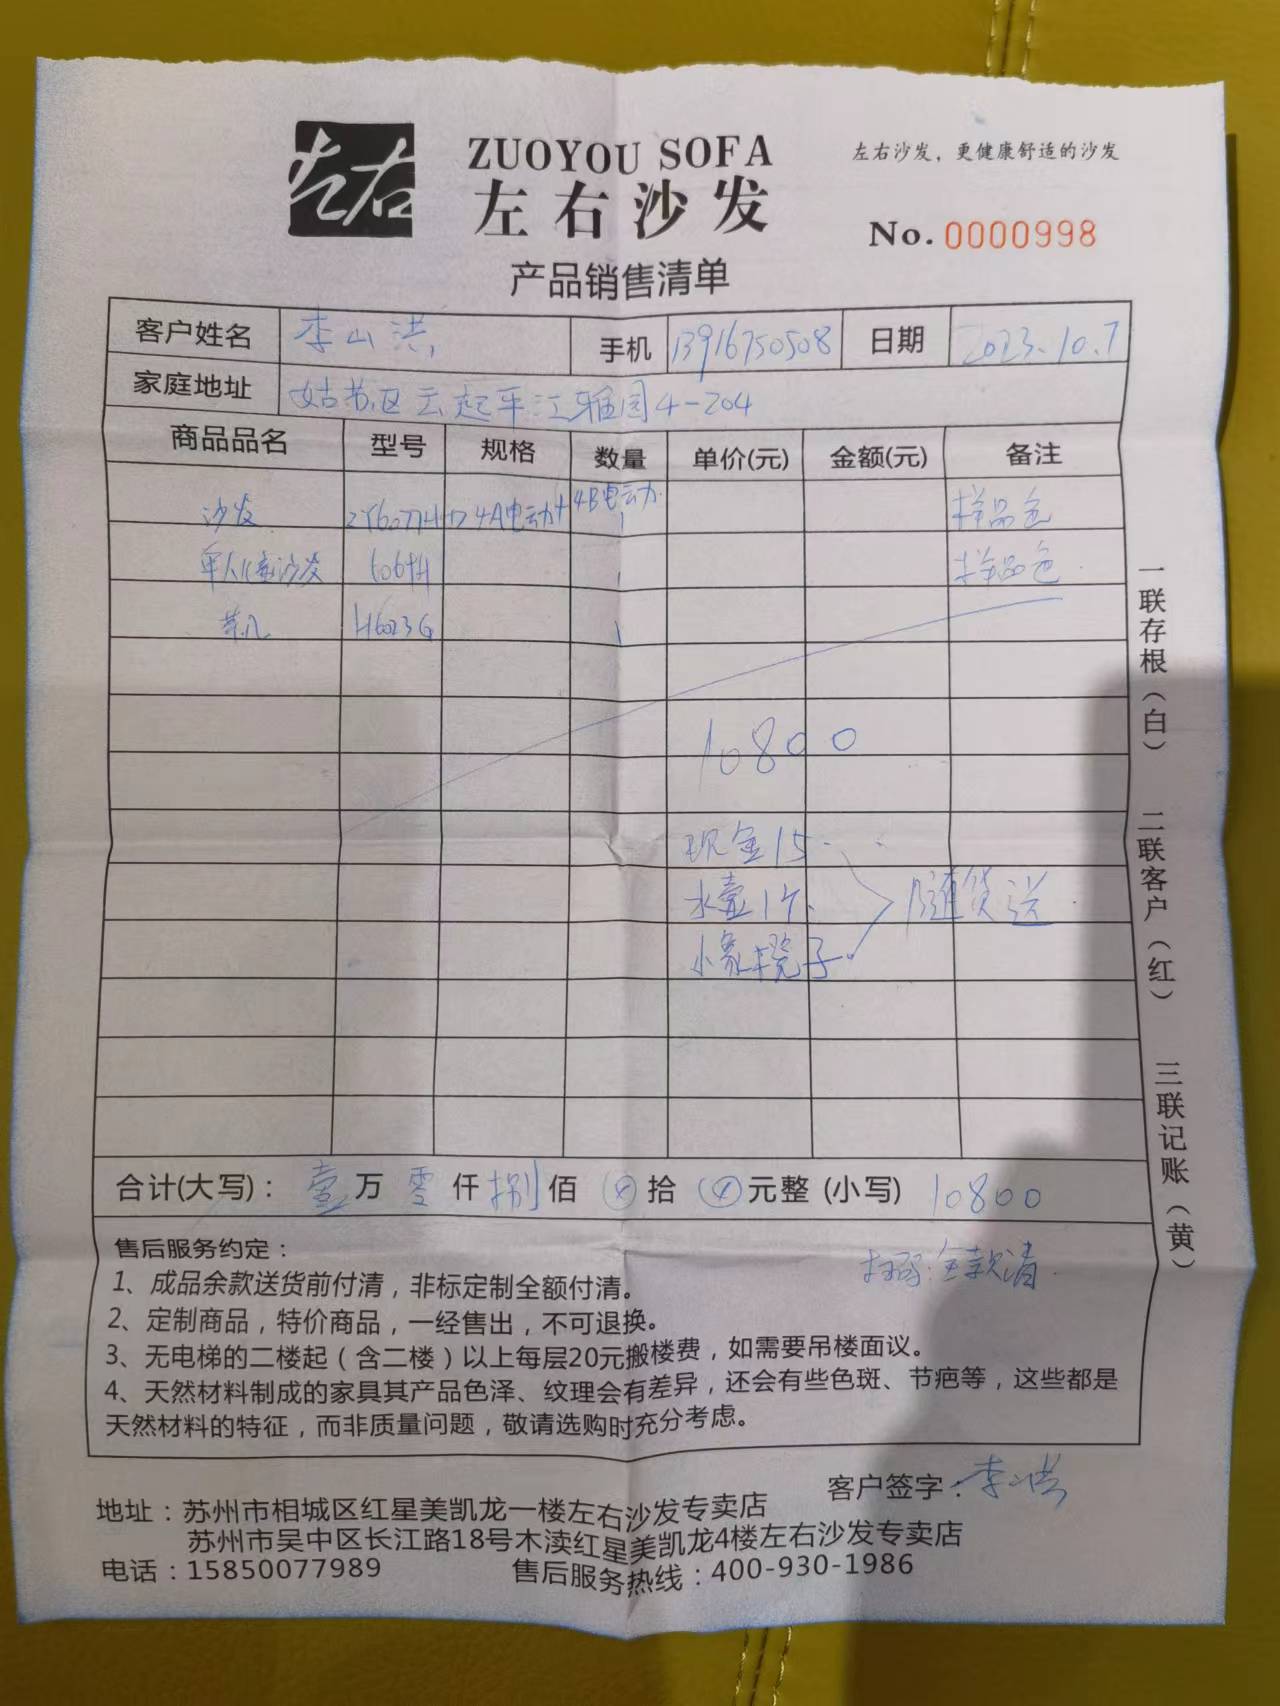 左右
ZUOYOU SOFA
左右沙发
左右沙发，更健康舒适的沙发
No. 0000998
产品销售清单
客户姓名 李山洪 手机 13916750508 日期 2023.10.7
家庭地址 姑苏区云起平江雅园4-204
商品品名 型号 规格 数量 单价(元) 金额(元) 备注
沙发 4A电动+4B电动 1 样品色
单人位沙发 1 样品色
茶几 H6023G 1
10800
现金15
水壶1个
小象凳子
随货送
合计(大写)：壹万零仟捌佰 拾 元整 (小写) 10800
全款清
售后服务约定：
1、成品余款送货前付清，非标定制全额付清。
2、定制商品，特价商品，一经售出，不可退换。
3、无电梯的二楼起（含二楼）以上每层20元搬楼费，如需要吊楼面议。
4、天然材料制成的家具其产品色泽、纹理会有差异，还会有些色斑、节疤等，这些都是
天然材料的特征，而非质量问题，敬请选购时充分考虑。
客户签字：李山洪
地址：苏州市相城区红星美凯龙一楼左右沙发专卖店
苏州市吴中区长江路18号木渎红星美凯龙4楼左右沙发专卖店
电话：15850077989 售后服务热线：400-930-1986
一联存根（白） 二联客户（红） 三联记账（黄）